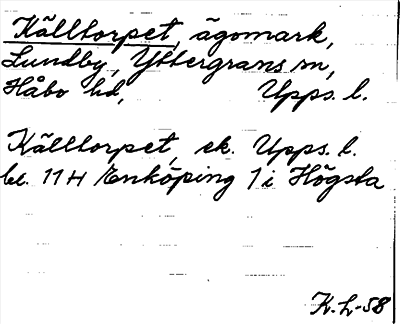 Källtorpet, ägomark,
Lundby, Yttergrans sn,
Håbo hd, Upps. l.
Källtorpet, ek. Upps. l.
bl. 11 H Enköping 1 i Högsta
K.L-58